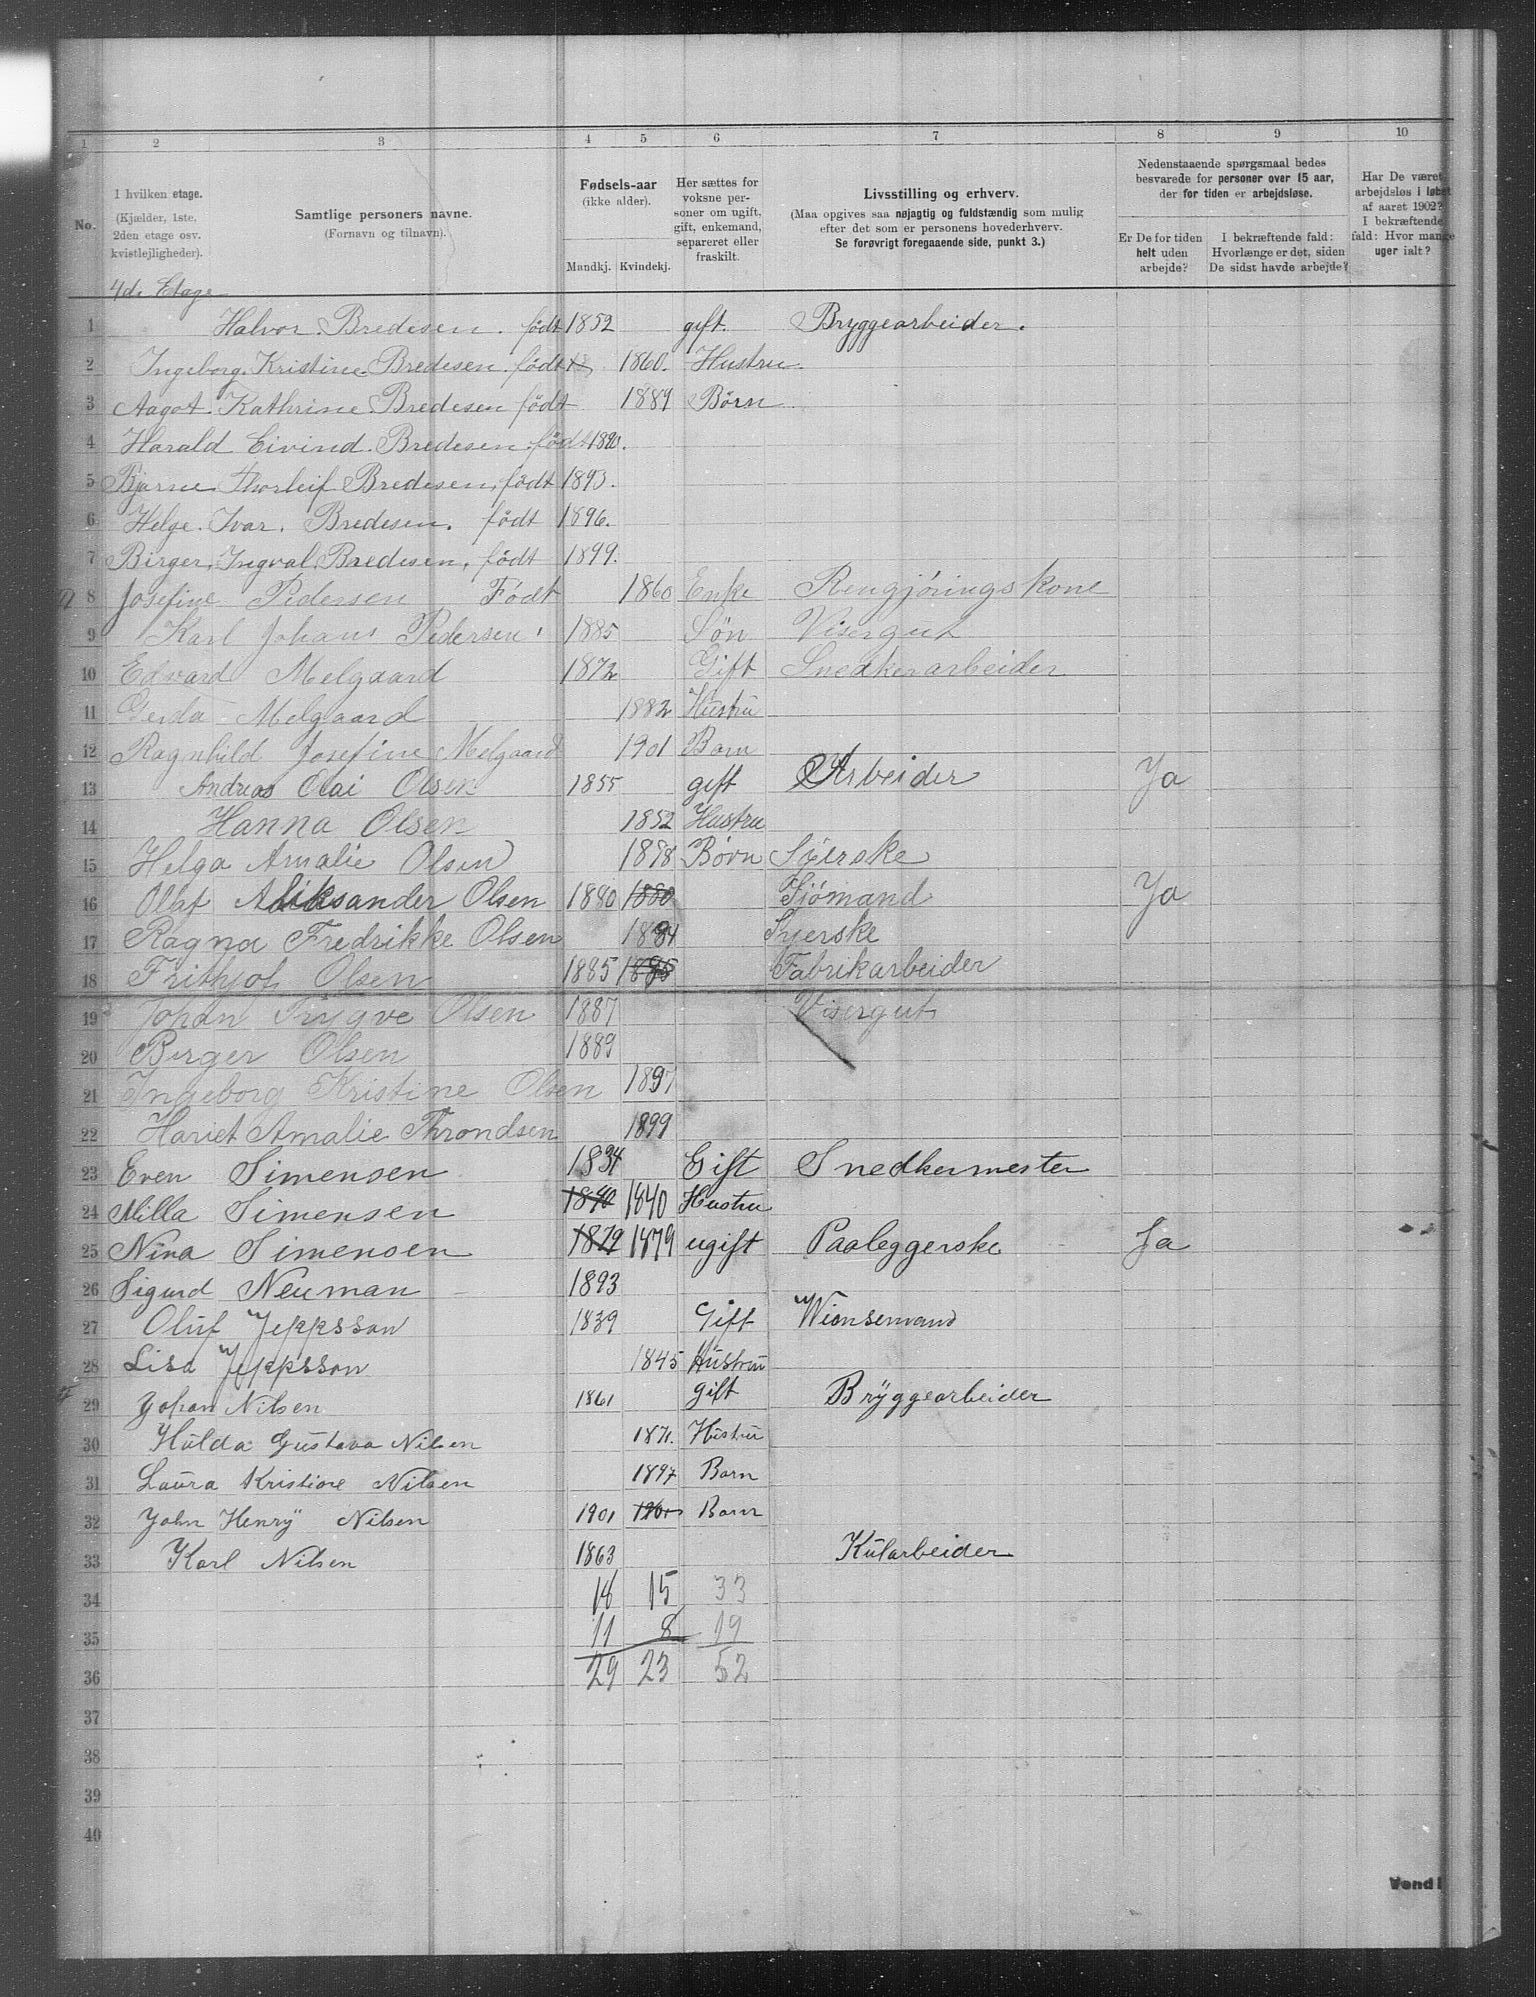 1 2 3 4 5 6 7 8 9 10
No.
I hvilken etage.
(Kjælder, 1ste,
2den etage osv.
kvistlejligheder).
Samtlige personers navne.
(Fornavn og tilnavn).
Fødsels-aar
(ikke alder).
Mandkj. Kvindekj.
Her sættes for
voksne per-
soner om ugift,
gift, enkemand,
separeret eller
fraskilt.
Livsstilling og erhverv.
(Maa opgives saa nøjagtig og fuldstændig som mulig
efter det som er personens hovederhverv.
Se forøvrigt foregaaende side, punkt 3.)
Nedenstaaende spørgsmaal bedes
besvarede for personer over 15 aar,
der for tiden er arbejdsløse.
Er De for tiden
helt uden
arbejde?
I bekræftende fald:
Hvorlænge er det, siden
De sidst havde arbejde?
Har De været
arbejdsløs i løbet
af aaret 1902?
I bekræftende
fald: Hvor mange
uger ialt?
4de Etage
1 Halvor. Bredesen. født 1852 gift. Bryggearbeider.
2 Ingeborg. Kristine Bredesen. født 1860. Hustru.
3 Aagot. Kathrine Bredesen født 1889 Børn
4 Harald Eivind. Bredesen. født 1890.
5 Bjarne Thorleif Bredesen, født 1893.
6 Helge. Ivar. Bredesen. født 1896.
7 Birger, Ingval, Bredesen, født 1899.
8 Josefine Pedersen Født 1860 Enke Rengjøringskone
9 Karl Johans Pedersen 1885 Søn Visergut
10 Edvard Melgaard 1872 Gift Snedkerarbeider
11 Gerda Melgaard 1882 Hustru
12 Ragnhild Josefine Melgaard 1901 Barn
13 Andreas Olai Olsen 1855 gift Arbeider Ja
14 Hanna Olsen 1852 Hustru
15 Helga Amalie Olsen 1878 Børn Syerske
16 Olaf Aliksander Olsen 1880 1880 Sjömand Ja
17 Ragna Fredrikke Olsen 1884 Syerske
18 Frithjof Olsen 1885 1885 Fabrikarbeider
19 Johan Trygve Olsen 1887 Visergut
20 Birger Olsen 1889
21 Ingeborg Kristine Olsen 1897
22 Hariet Amalie Throndsen 1899
23 Even Simensen 1834 Gift Snedkermester
24 Milla Simensen 1840 1840 Hustru
25 Nina Simensen 1879 1879 ugift Paaleggerske Ja
26 Sigurd Neuman 1893
27 Oluf Jeppsson 1839 Gift
28 Lisa Jeppsson 1845 Hustru
29 Johan Nilsen 1861 gift Bryggearbeider
30 Hulda Gustava Nilsen 1871. Hustru
31 Laura Kristine Nilsen 1897 Barn
32 John Henry Nilsen 1901 1901 Barn
33 Karl Nilsen 1863 Kularbeider
34 18 15 33
35 11 8 19
36 29 23 52
37
38
39
40
Vend!